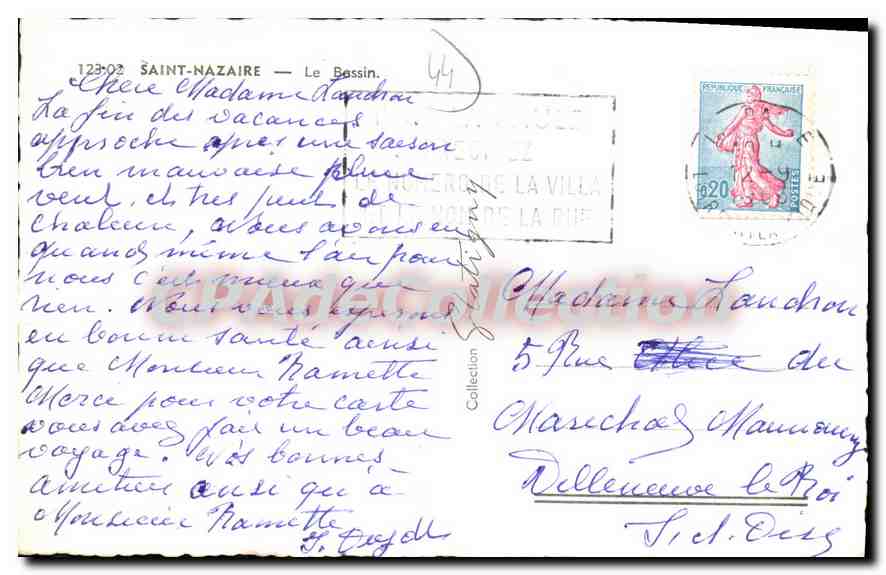 123.02 SAINT-NAZAIRE — Le Bassin.
44
Chère Madame Landron
La fin des vacances
approche après une saison
bien mauvaise pluie
vent, et très peu de
chaleur, nous avons eu
quand même l'air pour
nous c'est mieux que
rien. Nous vous espérons
en bonne santé ainsi
que Monsieur Ramette
Merci pour votre carte
vous avez fait un beau
voyage. Très bonnes
amitiés ainsi qu'à
Monsieur Ramette
LE NUMERO DE LA VILLA
ET LE NOM DE LA RUE
REPUBLIQUE FRANÇAISE
0,20
POSTES
Collection
CPAdeCollection
Madame Landron
5 Rue du
Marechal Maunoury
Villeneuve le Roi
S. et Oise